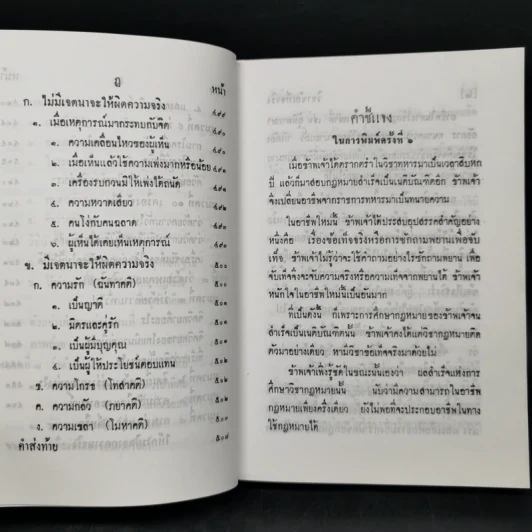 ฎ
หน้า
ก. ไม่มีเจตนาจะให้ผิดความจริง ๔๙๙
๑. เมื่อเหตุการณ์มากระทบกับจิต ๔๙๐
๑. ความเคลื่อนไหวของผู้เห็น ๔๙๐
๒. เมื่อเห็นแล้วใช้ความเพ่งมากหรือน้อย ๔๙๑
๓. เครื่องรบกวนมิให้เพ่งได้ถนัด ๔๙๑
๔. ความหวาดเสียว ๔๙๑
๕. คนโง่กับคนฉลาด ๔๙๑
๖. ผู้เห็นได้เคยเห็นเหตุการณ์
ข. มีเจตนาจะให้ผิดความจริง ๕๐๐
ก. ความรัก (ฉันทาคติ) ๕๐๑
๑. เป็นญาติ ๕๐๑
๒. มิตรและคู่รัก ๕๐๑
๓. เป็นผู้มีบุญคุณ ๕๐๒
๔. เป็นผู้ให้ประโยชน์ตอบแทน ๕๐๒
ข. ความโกรธ (โทสาคติ) ๕๐๒
ค. ความกลัว (ภยาคติ) ๕๐๔
ง. ความเขลา (โมหาคติ) ๕๐๕
คำส่งท้าย ๕๐๗
คำชี้แจง
ในการพิมพ์ครั้งที่ ๑
เมื่อข้าพเจ้าได้ตรากตรำในวิชาทหารมาเป็นเวลาสิบหก
ปี แล้วก็มาสอบกฎหมายสำเร็จเป็นเนติบัณฑิตอีก ข้าพเจ้า
จึงเปลี่ยนอาชีพจากราชการทหารมาเป็นทนายความ
ในอาชีพใหม่นี้ ข้าพเจ้าได้ประสบอุปสรรคสำคัญอย่าง
หนึ่งคือ เรื่องข้อเท็จจริงหรือการซักถามพยานเพื่อจับ
เท็จ ข้าพเจ้าไม่รู้ว่าจะใช้คำถามอย่างไรซักถามพยาน เพื่อ
จับเท็จจึงจะจับความจริงหรือความเท็จจากพยานได้ ข้าพเจ้า
หนักใจในอาชีพใหม่นี้เป็นอันมาก
ที่เป็นดังนี้ ก็เพราะการศึกษากฎหมายของข้าพเจ้าจน
สำเร็จเป็นเนติบัณฑิตนั้น ข้าพเจ้าคงได้แต่วิชากฎหมายติด
ตัวมาอย่างเดียว หามีวิชาข้อเท็จจริงมาด้วยไม่
ข้าพเจ้าเพิ่งรู้ชัดในขณะนั้นเองว่า ผลสำเร็จแห่งการ
ศึกษาวิชากฎหมายนั้น นับว่ามีความสามารถในอาชีพ
กฎหมายเพียงครึ่งเดียว ยังไม่พอที่จะประกอบอาชีพในทาง
ใช้กฎหมายได้